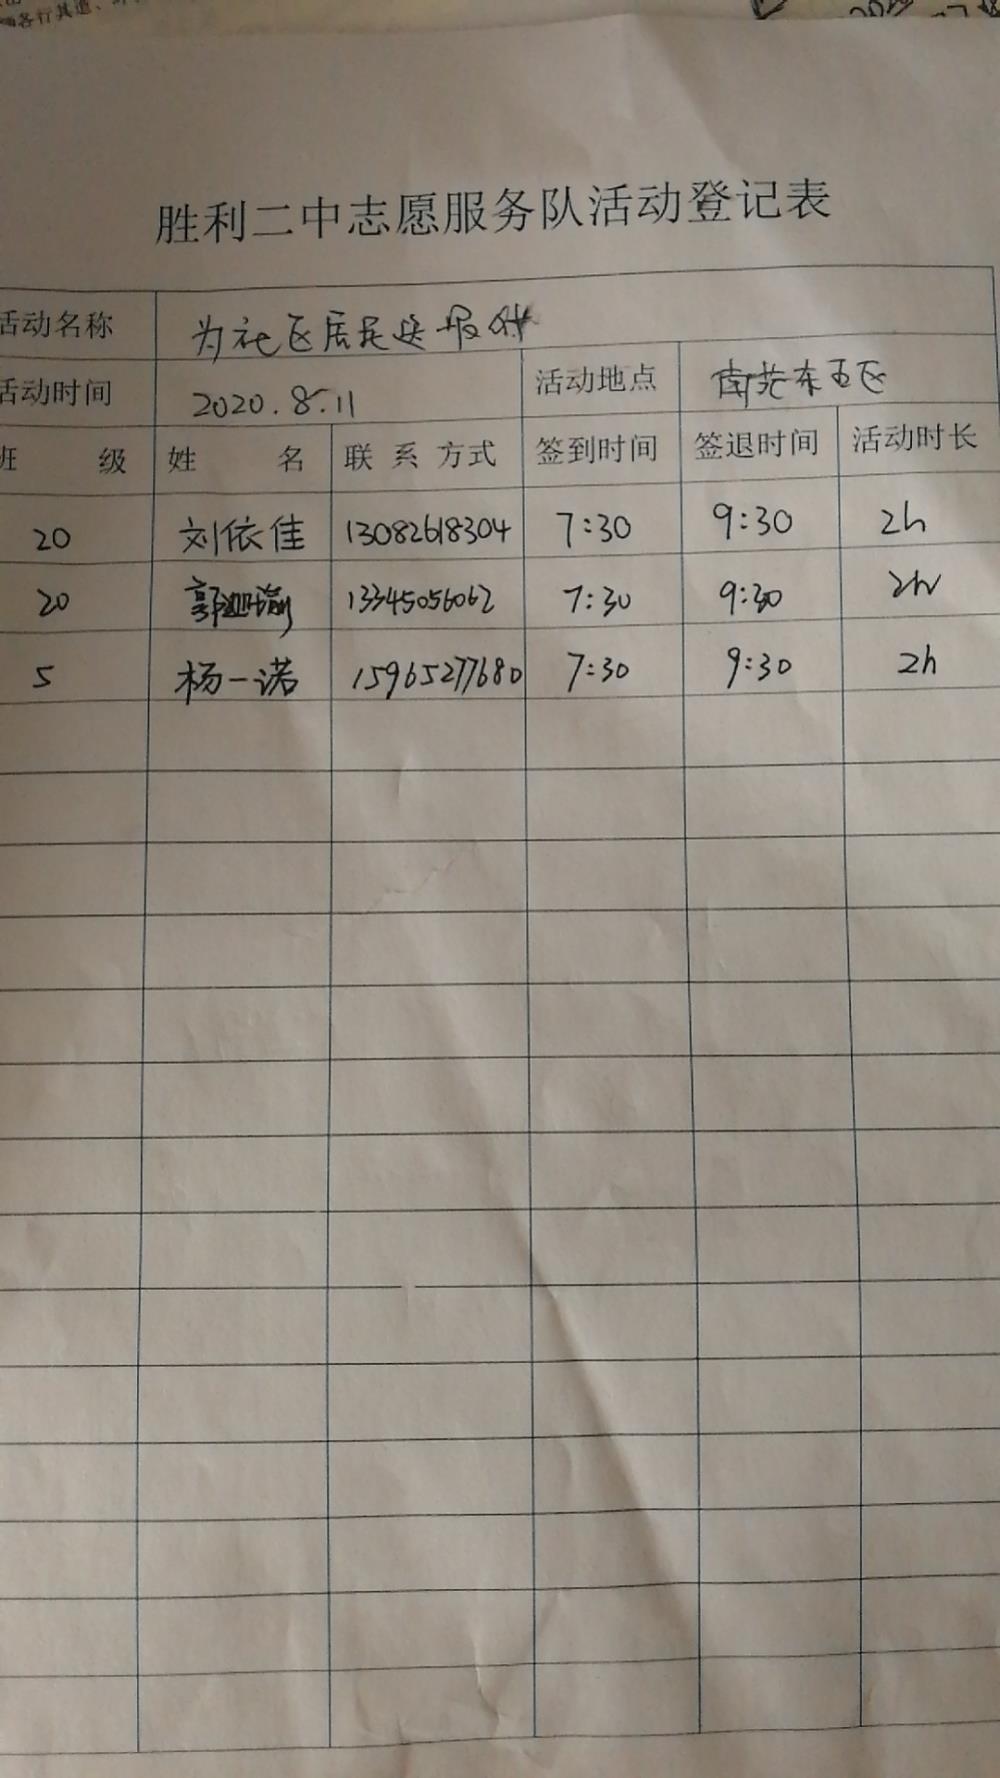 各行其道、
胜利二中志愿服务队活动登记表
活动名称 为社区居民送报纸
活动时间 2020.8.11 活动地点 南苑东五区
班 级 姓 名 联 系 方式 签到时间 签退时间 活动时长
20 刘依佳 13082618304 7:30 9:30 2h
20 郭 13345056062 7:30 9:30 2h
5 杨一诺 15965277680 7:30 9:30 2h